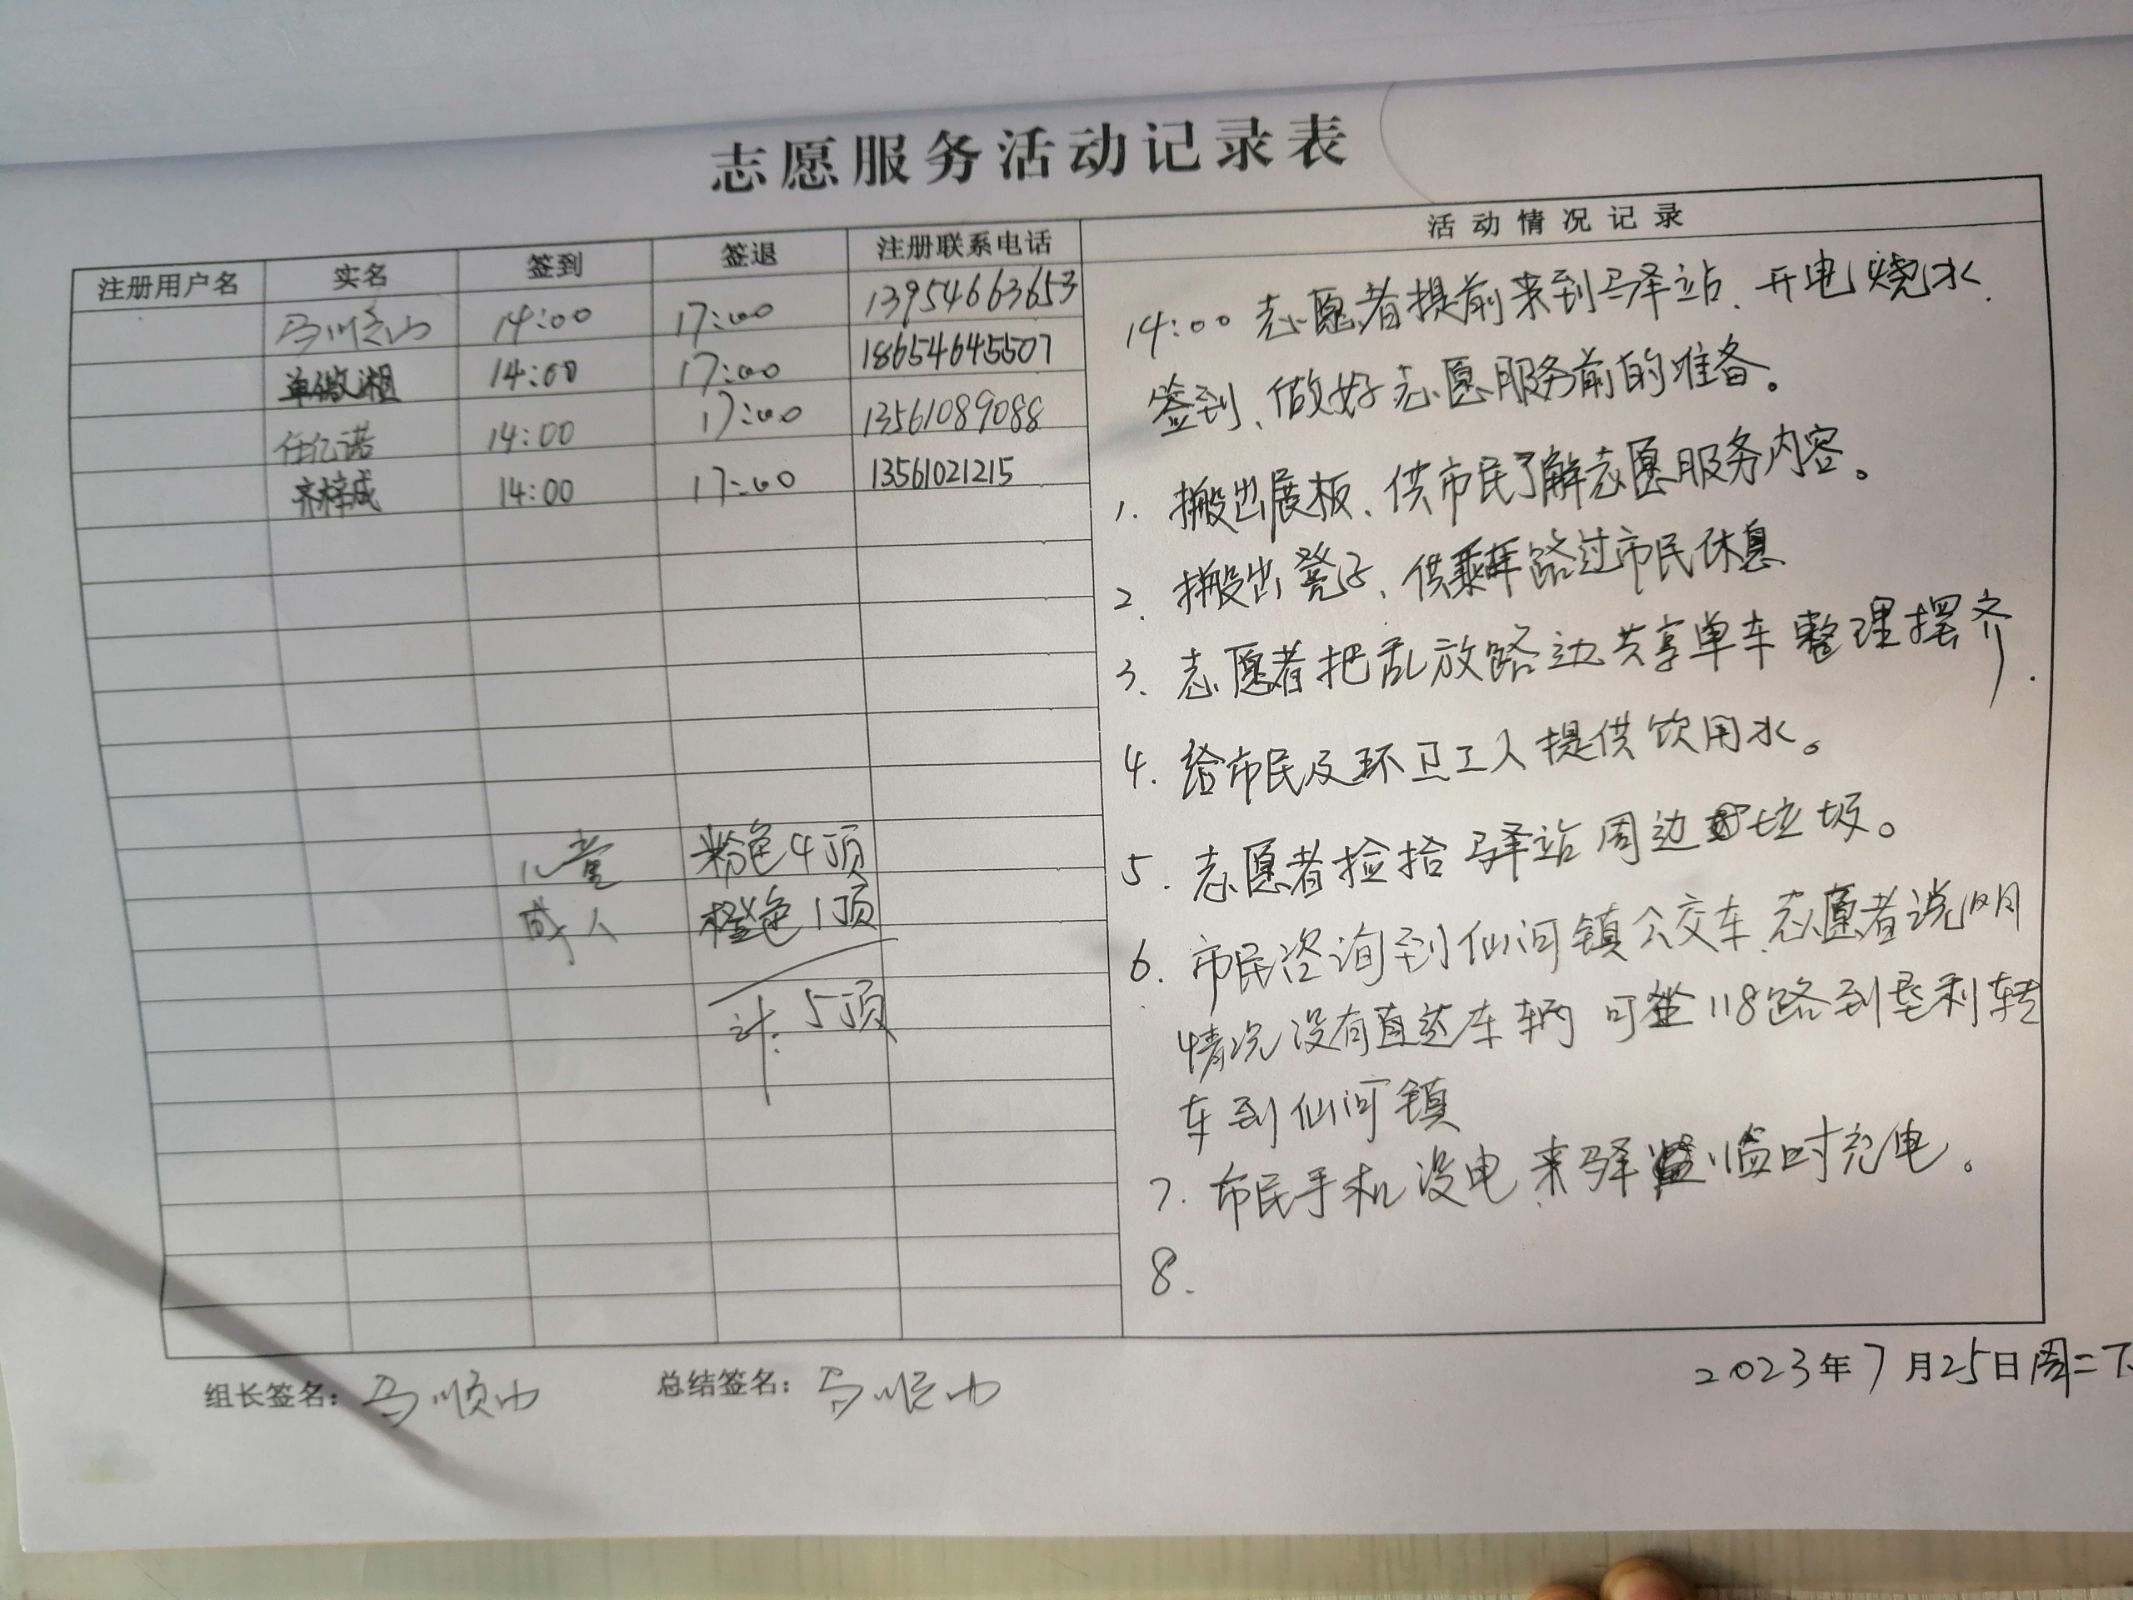 志愿服务活动记录表
注册用户名 实名 签到 签退 注册联系电话 活动情况记录
马顺山 14:00 17:00 13954663653
14:00 17:00 18654645507
任亿诺 14:00 17:00 13561089088
齐梓成 14:00 17:00 13561021215
儿童 粉色4顶
成人 橙色1顶
计: 5顶
14:00 志愿者提前来到驿站、开电烧水、
签到、做好志愿服务前的准备。
1. 搬出展板、供市民了解志愿服务内容。
2. 搬出凳子、供乘车路过市民休息
3. 志愿者把乱放路边共享单车整理摆齐.
4. 给市民及环卫工人提供饮用水。
5. 志愿者捡拾驿站周边垃圾。
6. 市民咨询到仙河镇公交车,志愿者说明
情况没有直达车辆 可坐118路到垦利转
车到仙河镇
7. 市民手机没电来驿站临时充电。
8.
组长签名: 马顺山 总结签名: 马顺山 2023年7月25日周二下